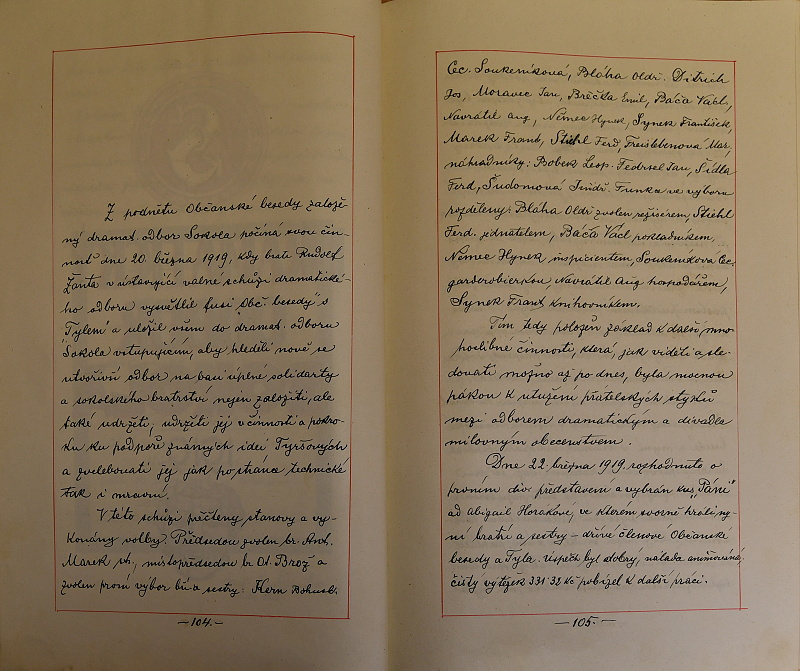 Z podnětu Občanské besedy založe-
ný dramat. odbor Sokola počíná svou čin-
nost dne 20. března 1919, kdy bratr Rudolf
Žanta v ustavující valné schůzi dramatické-
ho odboru vysvětlil fusi „Obč. besedy" s
„Tylem" a uložil všem do dramat. odboru
Sokola vstupujícím, aby hleděli nově se
utvořivší odbor na basi úplné solidarity
a sokolského bratrství nejen založiti, ale
také udržeti, udržeti jej v činnosti a pokro-
ku ku podpoře známých ideí Tyršových
a zvelebovati jej jak po stránce technické
tak i mravní.
V této schůzi přečteny stanovy a vy-
konány volby. Předsedou zvolen br. Ant.
Marek ml., místopředsedou br. Ot. Brož a
zvolen první výbor bři a sestry: Kern Bohusl.
—104.—
Cec. Soukeníková, Bláha Oldř. Ditrich
Jos, Moravec Jan, Brečka Emil, Báča Václ,
Navrátil Aug, Němec Hynek, Synek František,
Marek Frant, Stiehl Ferd, Freislebenová Mar,
náhradníky: Bobek Leop. Jan, Šídla
Ferd, Šudomová Jindř. Funkce ve výboru
rozděleny: Bláha Oldř zvolen režisérem, Stiehl
Ferd. jednatelem, Báča Václ pokladníkem,
Němec Hynek inspicientem, Soukeníková Cec.
garderobierkou Navrátil Aug hospodářem,
Synek Frant knihovníkem.
Tím tedy položen základ k další mno-
hoslibné činnosti, která, jak viděti a sle-
dovati možno až po dnes, byla mocnou
pákou k utužení přátelských styků
mezi odborem dramatickým a divadla
milovným obecenstvem.
Dne 22. března 1919. rozhodnuto o
prvním div. představení a vybrán kus „Páni"
od Abigail Horákové, ve kterém svorně hráli ny-
ní bratří a sestry – dříve členové Občanské
besedy a Tyla. Úspěch byl dobrý, nálada animovaná,
čistý výtěžek 331·32 Kč pobízel k další práci.
—105.—